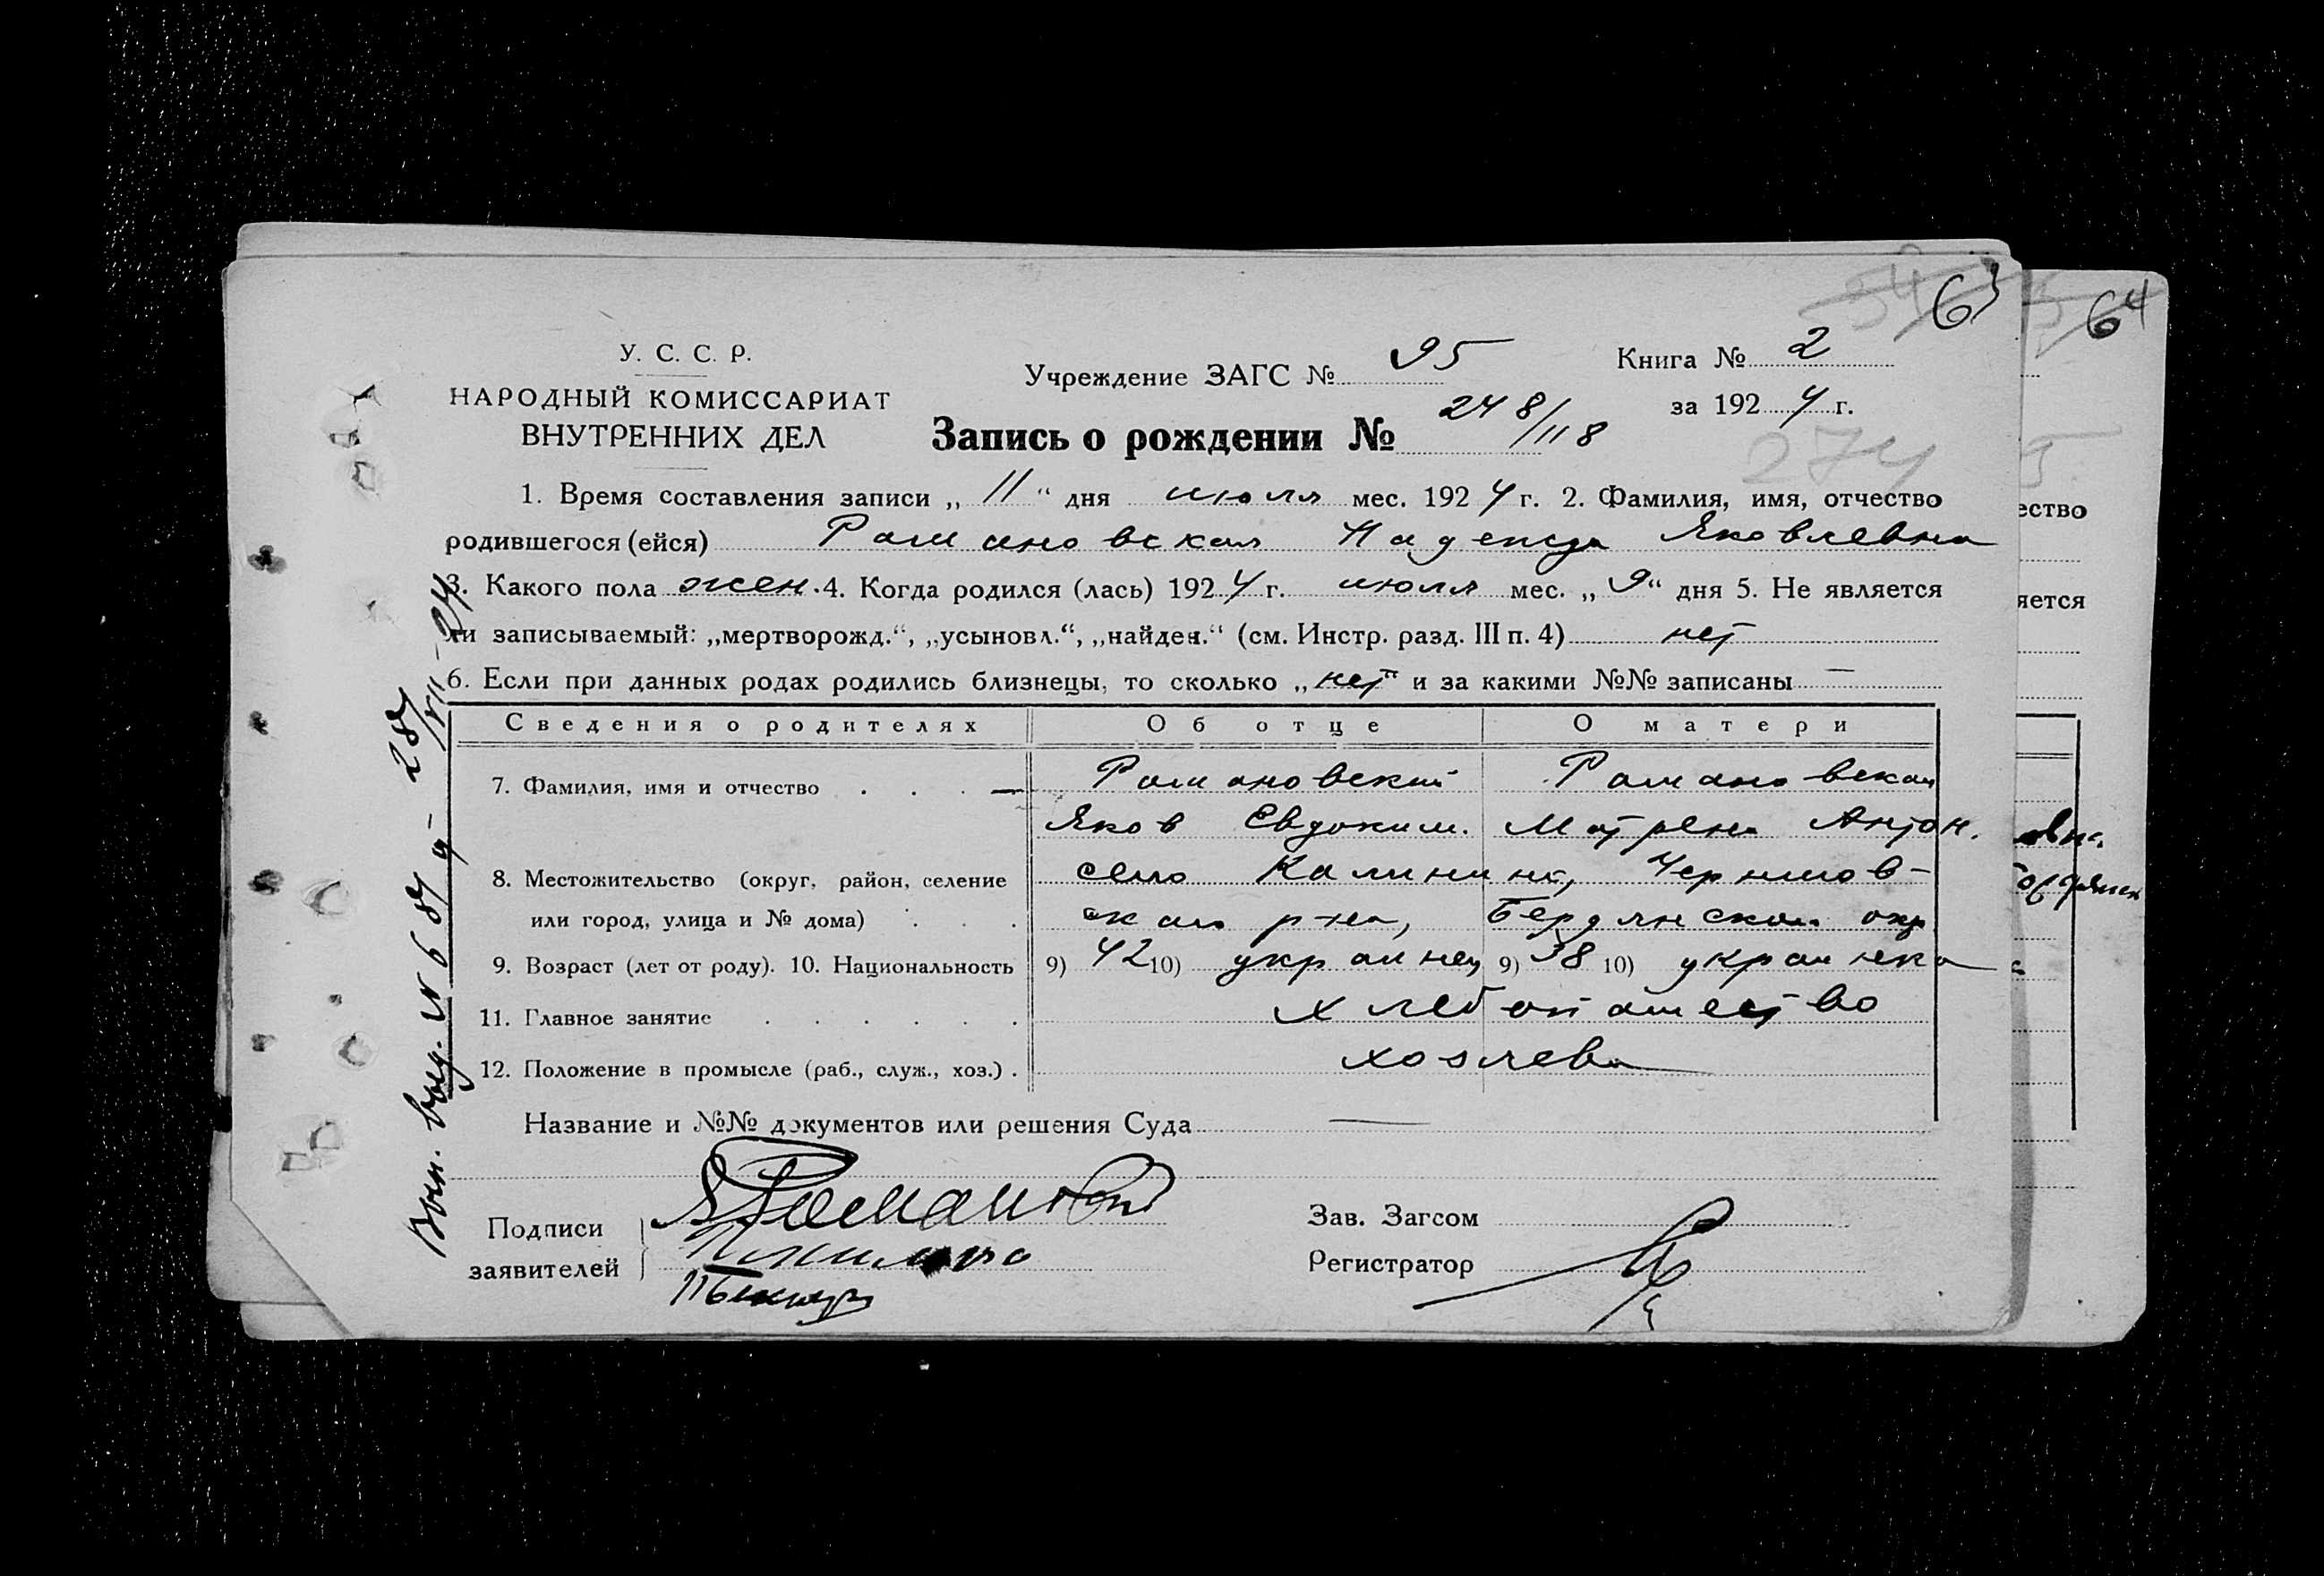 63
64
У. С. С. Р.
НАРОДНЫЙ КОМИССАРИАТ
ВНУТРЕННИХ ДЕЛ
Учреждение ЗАГС № 95
Книга № 2
за 1924 г.
Запись о рождении № 248/118
274
1. Время составления записи „11“ дня июля мес. 1924 г. 2. Фамилия, имя, отчество
родившегося (ейся) Романовская Надежда Яковлевна
3. Какого пола жен. 4. Когда родился (лась) 1924 г. июля мес. „9“ дня 5. Не является
ли записываемый: „мертворожд.“, „усыновл.“, „найден.“ (см. Инстр. разд. III п. 4) нет
6. Если при данных родах родились близнецы, то сколько „нет“ и за какими №№ записаны —
Сведения о родителях Об отце О матери
7. Фамилия, имя и отчество . . . Романовский Романовская
Яков Евдоким. Матрена Антон.
8. Местожительство (округ, район, селение село Калинина, Чернигов-
или город, улица и № дома) . . . ского р-на, Бердянского окр.
9. Возраст (лет от роду). 10. Национальность 9) 42 10) украинец 9) 38 10) украинка
11. Главное занятие . . . . . . хлебопашество
12. Положение в промысле (раб., служ., хоз.) . хозяева
Название и №№ документов или решения Суда —
Подписи
заявителей
Зав. Загсом
Регистратор
ество
яется